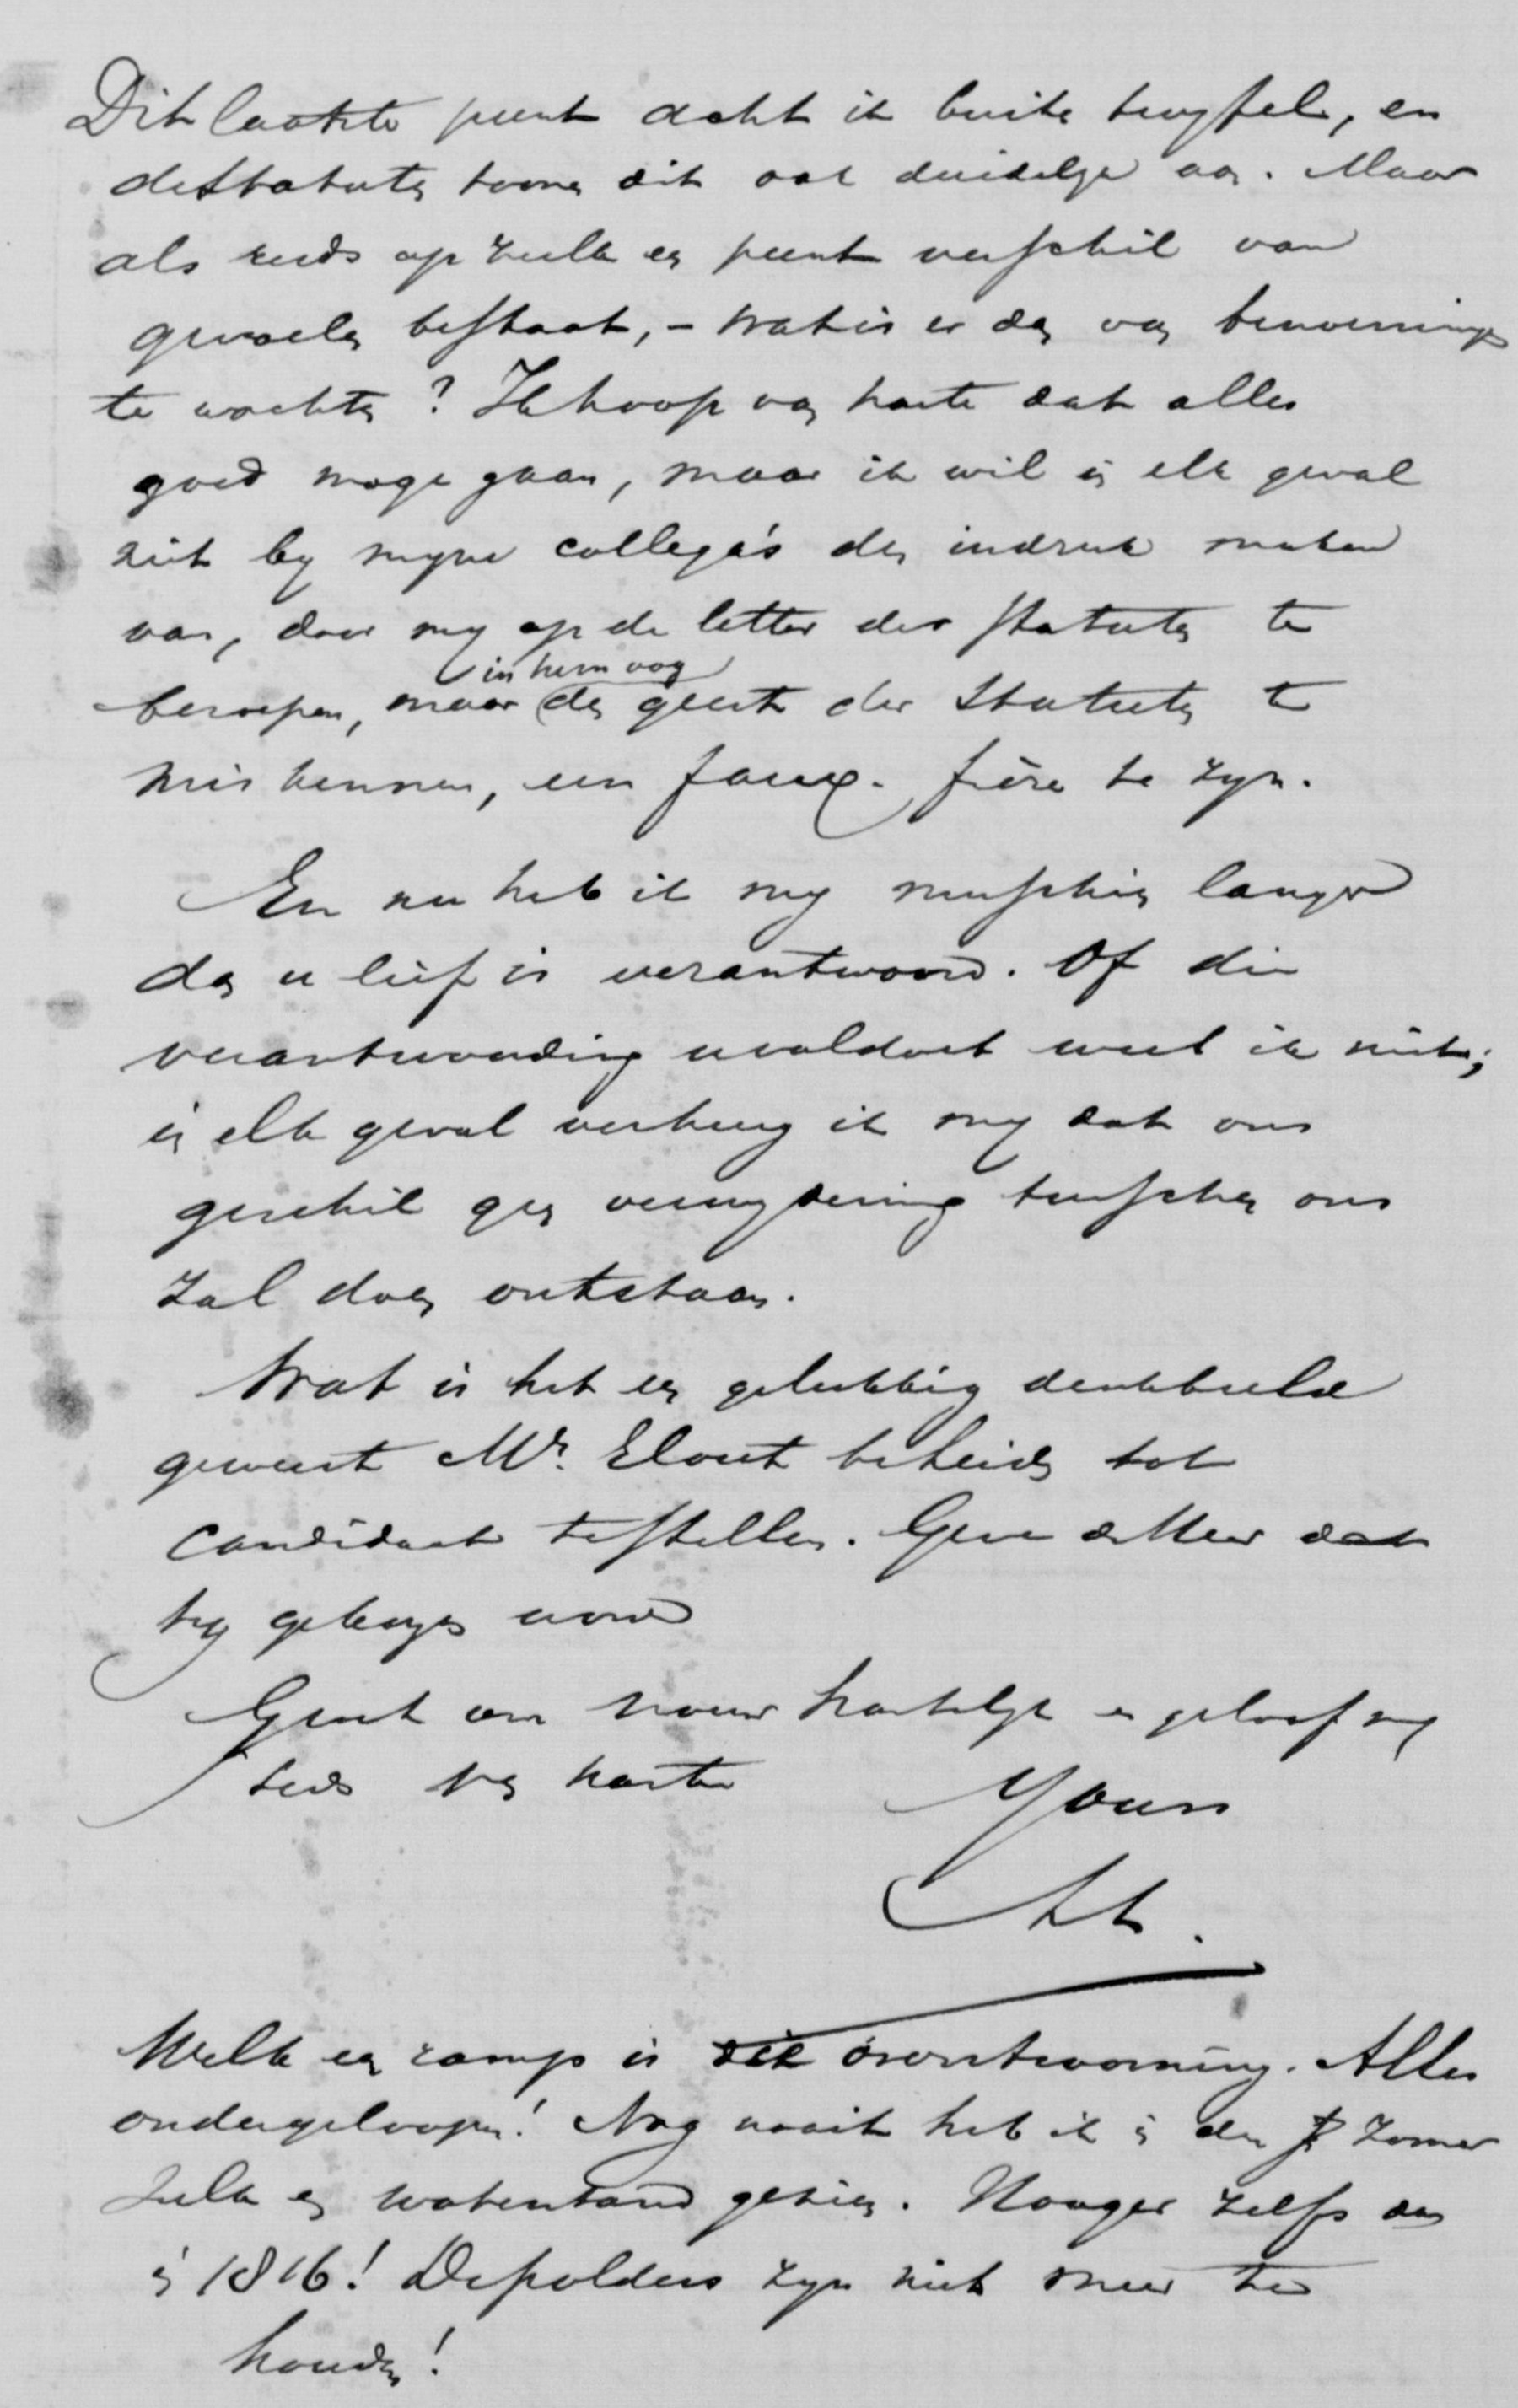 Dit laatste punt acht ik buiten twyfel, en
de statuten toonen dit ook duidelyk aan. Maar
als reeds op zulk een punt verschil van
gevoelen bestaat, – wat is er dan van benoemingen
te wachten? Ik hoop van harte dat alles
goed moge gaan, maar ik wil in elk geval
niet by myne collega's den indruk maken
van, door my op de letter der statuten te
beroepen, maar den geest der statuten in hun oog te
miskennen, een faux-frère te zyn.
En nu heb ik my misschien langer
dan u lief is verantwoord. Of die
verantwoording u voldoet weet ik niet;
in elk geval verheug ik my dat ons
geschil geen verwydering tusschen ons
zal doen ontstaan.
Wat is het een gelukkig denkbeeld
geweest Mr. Elout tot
candidaat te stellen. Geve de Heer dat
hy gekozen word
Groet uw vrouw hartelyk en geloof my
steeds van harte
Yours

Welk een ramp is die overstrooming. Alles
ondergeloopen! Nog nooit heb ik in den zomer
zulk een waterstand gezien. Hooger zelfs dan
in 1816! De polders zyn niet meer te
houden!